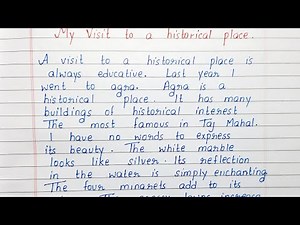 My Visit to a historical place.
A visit to a historical place is
always educative. Last year I
went to agra. Agra is a
historical place. It has many
buildings of historical interest
The most famous in Taj Mahal.
I have no words to express
its beauty. The white marble
looks like silver. Its reflection
in the water is simply enchanting
The four minarets add to its